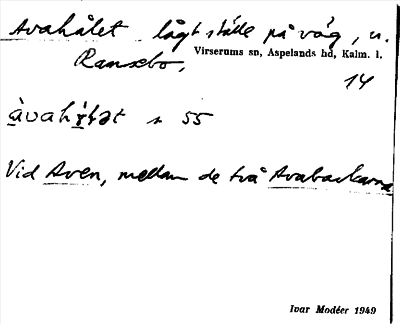 Avahålet lågt ställe på väg, u.
Virserums sn, Aspelands hd, Kalm. l.
Ransebo,
14
s 55
Vid Aven, mellan de två Avabackarna
Ivar Modéer 1949